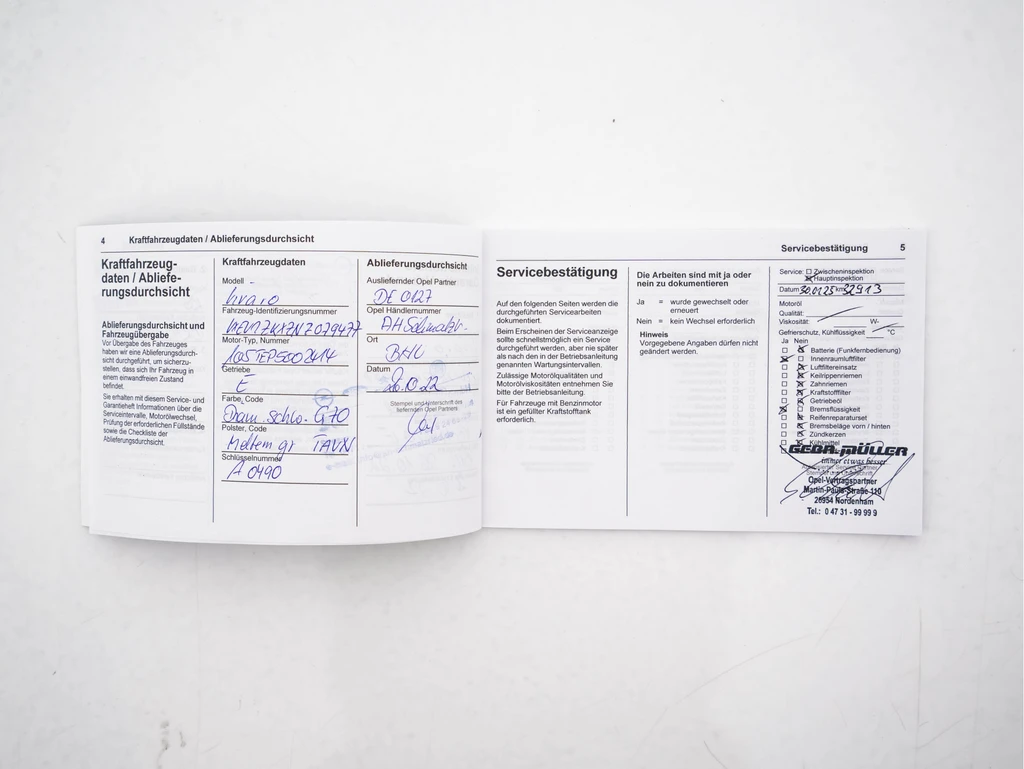 4 Kraftfahrzeugdaten / Ablieferungsdurchsicht
Kraftfahrzeug-
daten / Abliefe-
rungsdurchsicht
Ablieferungsdurchsicht und
Fahrzeugübergabe
Vor Übergabe des Fahrzeuges
haben wir eine Ablieferungsdurch-
sicht durchgeführt, um sicherzu-
stellen, dass sich Ihr Fahrzeug in
einem einwandfreien Zustand
befindet.
Sie erhalten mit diesem Service- und
Garantieheft Informationen über die
Serviceintervalle, Motorölwechsel,
Prüfung der erforderlichen Füllstände
sowie die Checkliste der
Ablieferungsdurchsicht.
Kraftfahrzeugdaten
Modell
Vivaro
Fahrzeug-Identifizierungsnummer
Motor-Typ, Nummer
Getriebe
E
Farbe, Code
G70
Polster, Code
Schlüsselnummer
A 0490
Ablieferungsdurchsicht
Ausliefernder Opel Partner
DE 0127
Opel Händlernummer
Ort
Datum
Stempel und Unterschrift des
liefernden Opel Partners
Servicebestätigung 5
Servicebestätigung
Auf den folgenden Seiten werden die
durchgeführten Servicearbeiten
dokumentiert.
Beim Erscheinen der Serviceanzeige
sollte schnellstmöglich ein Service
durchgeführt werden, aber nie später
als nach den in der Betriebsanleitung
genannten Wartungsintervallen.
Zulässige Motorölqualitäten und
Motorölviskositäten entnehmen Sie
bitte der Betriebsanleitung.
Für Fahrzeuge mit Benzinmotor
ist ein gefüllter Kraftstofftank
erforderlich.
Die Arbeiten sind mit ja oder
nein zu dokumentieren
Ja = wurde gewechselt oder
erneuert
Nein = kein Wechsel erforderlich
Hinweis
Vorgegebene Angaben dürfen nicht
geändert werden.
Service: Zwischeninspektion
Hauptinspektion
Datum 30.01.25 km 32913
Motoröl
Qualität:
Viskosität: W-
Gefrierschutz, Kühlflüssigkeit °C
Ja Nein
Batterie (Funkfernbedienung)
Innenraumluftfilter
Luftfiltereinsatz
Keilrippenriemen
Zahnriemen
Kraftstofffilter
Getriebeöl
Bremsflüssigkeit
Reifenreparaturset
Bremsbeläge vorn / hinten
Zündkerzen
Kühlmittel
GEBR. MÜLLER
immer etwas besser
Opel-Vertragspartner
Martin-Pauls-Straße 110
26954 Nordenham
Tel.: 0 47 31 - 99 99 9